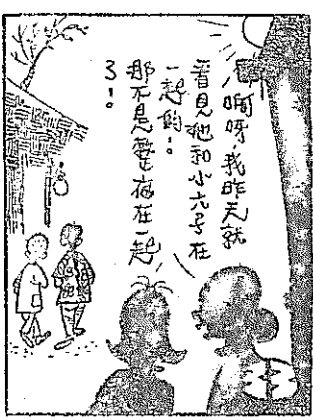 啊呀，我昨天就
看見他和小六子在
一起的。
那不是整夜在一起
了！。